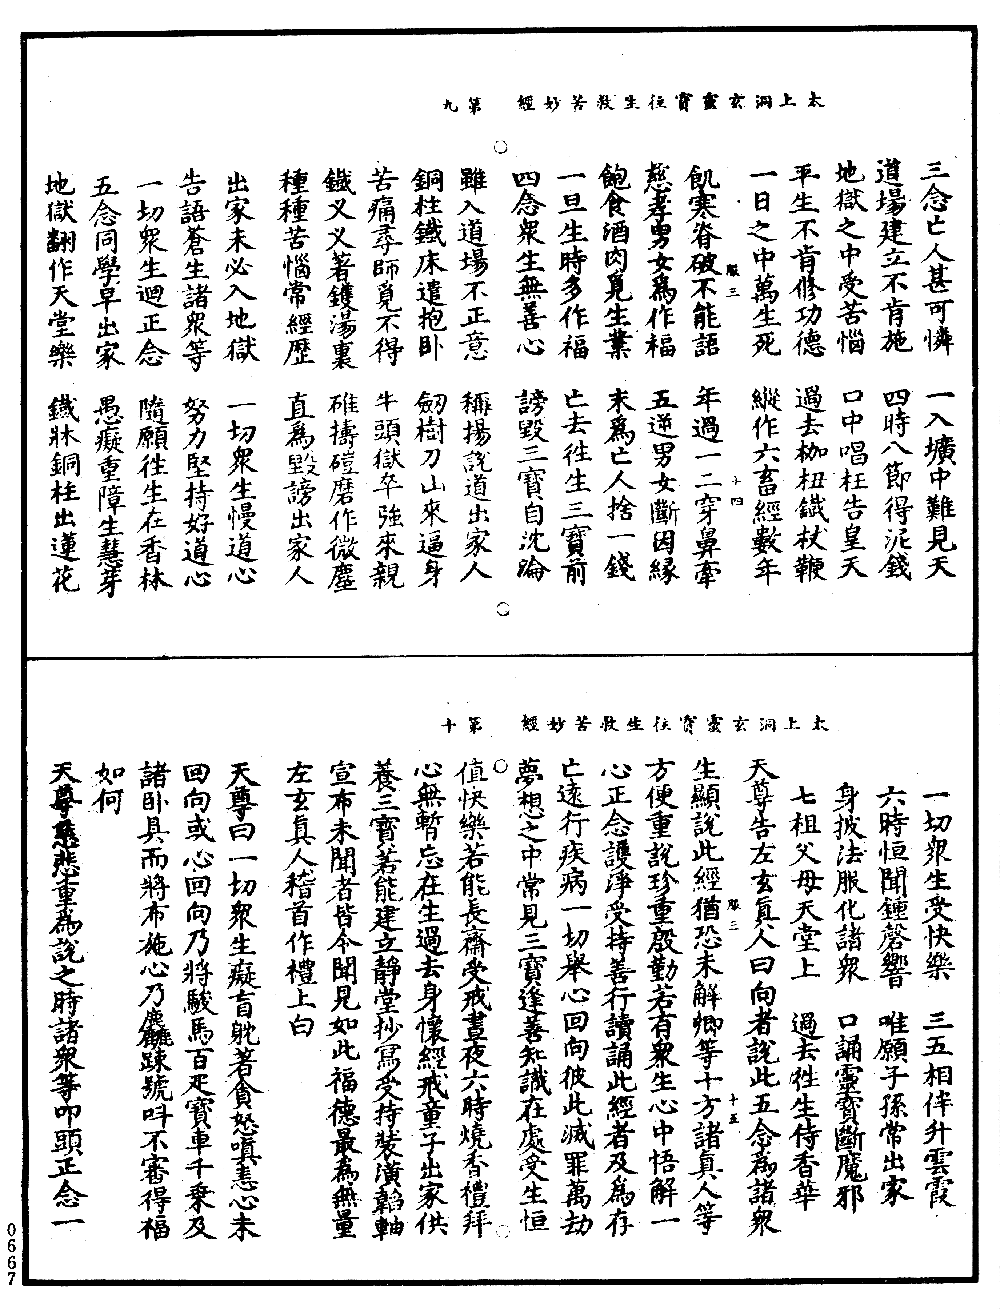 太上洞玄靈寶往生救苦妙經　第九
三念亡人甚可憐　一入壙中難見天
道場建立不肯施　四時八節得泥錢
地獄之中受苦惱　口中唱枉告皇天
平生不肯修功德　過去枷杻鐵杖鞭
一日之中萬生死　縱作六畜經數年
服三　十四
飢寒脊破不能語　年過一二穿鼻牽
慈孝男女為作福　五逆男女斷因緣
飽食酒肉覓生業　未為亡人捨一錢
一旦生時多作福　亡去往生三寶前
四念衆生無善心　謗毀三寶自沈淪
雖入道場不正意　稱揚說道出家人
銅柱鐵床遣抱卧　劒樹刀山來逼身
苦痛尋師覓不得　牛頭獄卒強來親
鐵叉叉著鑊湯裏　碓擣磑磨作微塵
種種苦惱常經歷　直為毀謗出家人
出家未必入地獄　一切衆生慢道心
告語蒼生諸衆等　努力堅持好道心
一切衆生迴正念　隨願往生在香林
五念同學早出家　愚癡重障生慧芽
地獄翻作天堂樂　鐵牀銅柱出蓮花
太上洞玄靈寶往生救苦妙經　第十
一切衆生受快樂　三五相伴升雲霞
六時恒聞鍾磬響　唯願子孫常出家
身披法服化諸衆　口誦靈寶斷魔邪
七祖父母天堂上　過去往生侍香華
天尊告左玄真人曰向者說此五念為諸衆
服三　十五
生顯說此經猶恐未解卿等十方諸真人等
方便重說珍重慇勤若有衆生心中悟解一
心正念護淨受持善行讀誦此經者及為存
亡遠行疾病一切舉心回向彼此滅罪萬劫
夢想之中常見三寶逢善知識在處受生恒
值快樂若能長齋受戒晝夜六時燒香禮拜
心無暫忘在生過去身懷經戒童子出家供
養三寶若能建立靜堂抄寫受持裝潢韜軸
宣布未聞者皆令聞見如此福德最為無量
左玄真人稽首作禮上白
天尊曰一切衆生癡盲躭著貪怒嗔恚心未
回向或心回向乃將駿馬百疋寶車千乗及
諸卧具而將布施心乃麤踈號呌不審得福
如何
天尊慈悲重為說之時諸衆等叩頭正念一
0667